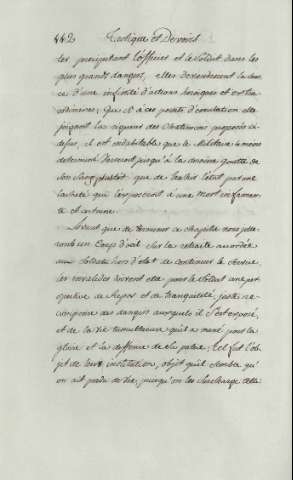 442 Tactique et Devoirs
ter précipitent l'officier et le Soldat dans les
plus grands dangers, elles deviendroient la sour
ce d'une infinité d'actions héroïques et extra
ordinaires; Que si à ces points d'émulation elle
joignait la rigueur des Chatimens proposés ci
dessus, il est indubitable que le Militaire le moins
déterminé verseroit jusqu'à la dernière goutte de
son Sang plutôt que de trahir l'état par une
lacheté qui l'exposeroit à une mort infamen
te et certaine.
Avant que de terminer ce chapitre nous jette
rons un Coup d'oeil sur la retraite accordée
aux Soldats hors d'état de continuer le Service
les invalides seront elle pour le Soldat une per
spective de Repos et de tranquilité, juste ré
compense des dangers auxquels il s'est exposé,
et de la vie tumultueuse qu'il a mené pour la
gloire et la deffense de Sa patrie; tel fut l'ob
jet de leur institution, objet qu'il semble qu'
on ait perdu de vue, puisqu'on les Surcharge